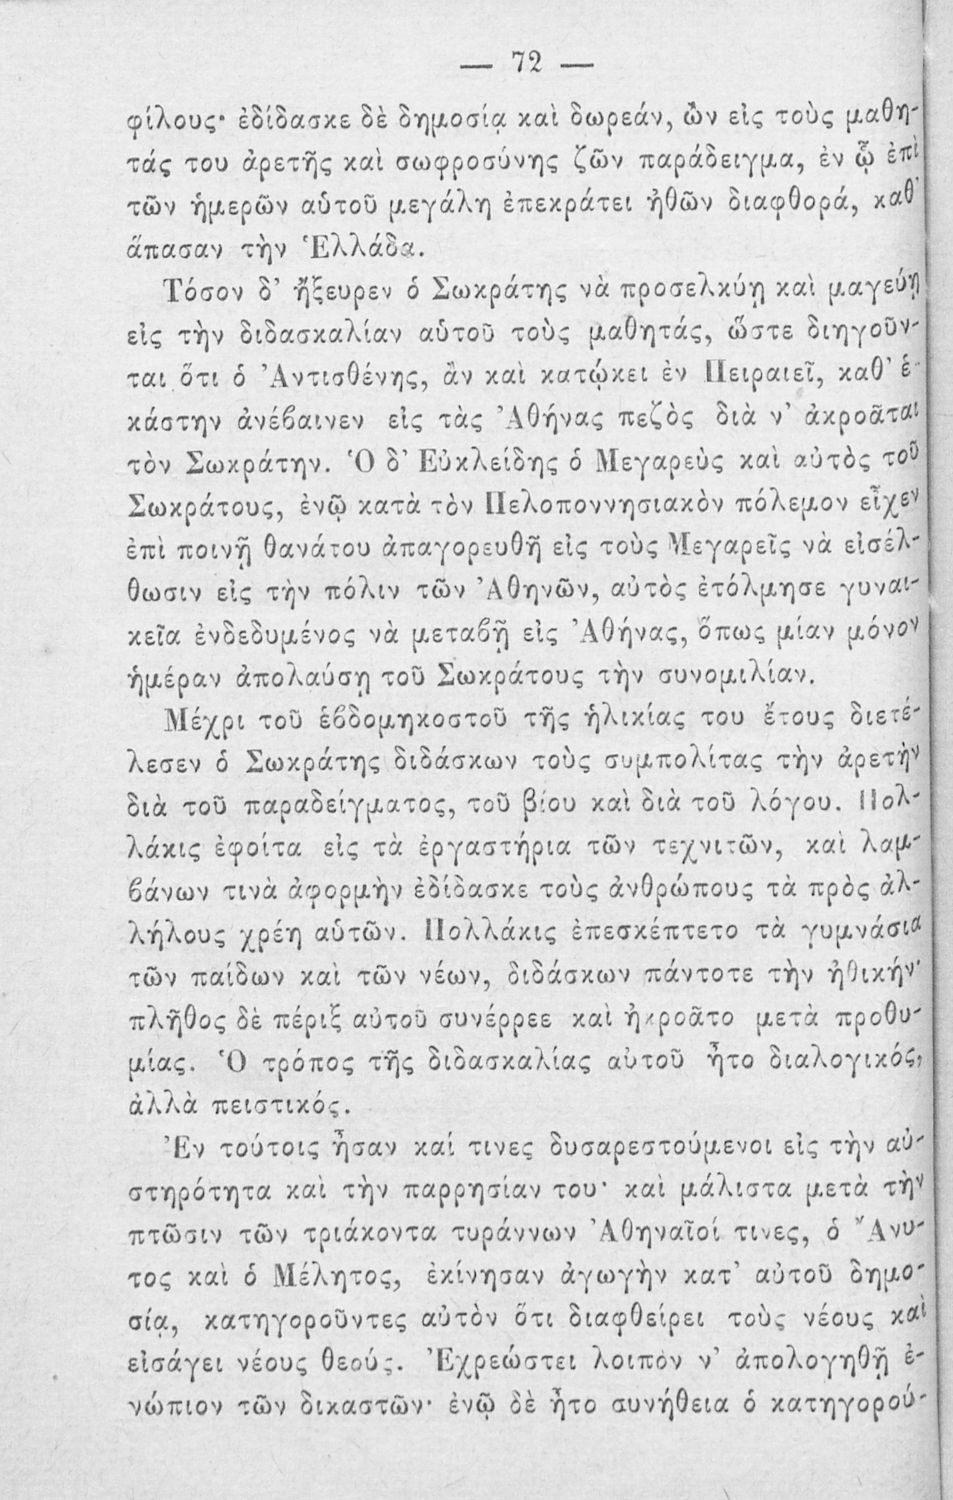 — 72 —
φίλους· ἐδίδασκε δὲ δημοσίᾳ καὶ δωρεάν, ὢν εἰς τοὺς μαθη-
τάς του ἀρετῆς καὶ σωφροσύνης ζῶν παράδειγμα, ἐν ᾧ ἐπὶ
τῶν ἡμερῶν αὑτοῦ μεγάλη ἐπεκράτει ἠθῶν διαφθορά, καθ'
ἅπασαν τὴν Ἑλλάδα.
Τόσον δ' ἤξευρεν ὁ Σωκράτης νὰ προσελκύῃ καὶ μαγεύῃ
εἰς τὴν διδασκαλίαν αὑτοῦ τοὺς μαθητάς, ὥστε διηγοῦν-
ται ὅτι ὁ Ἀντισθένης, ἂν καὶ κατῴκει ἐν Πειραιεῖ, καθ' ἑ-
κάστην ἀνέβαινεν εἰς τὰς Ἀθήνας πεζὸς διὰ ν' ἀκροᾶται
τὸν Σωκράτην. Ὁ δ' Εὐκλείδης ὁ Μεγαρεὺς καὶ αὐτὸς τοῦ
Σωκράτους, ἐνῷ κατὰ τὸν Πελοποννησιακὸν πόλεμον εἶχεν
ἐπὶ ποινῇ θανάτου ἀπαγορευθῆ εἰς τοὺς Μεγαρεῖς νὰ εἰσέλ-
θωσιν εἰς τὴν πόλιν τῶν Ἀθηνῶν, αὐτὸς ἐτόλμησε γυναι-
κεῖα ἐνδεδυμένος νὰ μεταβῇ εἰς Ἀθήνας, ὅπως μίαν μόνον
ἡμέραν ἀπολαύσῃ τοῦ Σωκράτους τὴν συνομιλίαν.
Μέχρι τοῦ ἑβδομηκοστοῦ τῆς ἡλικίας του ἔτους διετέ-
λεσεν ὁ Σωκράτης διδάσκων τοὺς συμπολίτας τὴν ἀρετὴν
διὰ τοῦ παραδείγματος, τοῦ βίου καὶ διὰ τοῦ λόγου. Πολ-
λάκις ἐφοίτα εἰς τὰ ἐργαστήρια τῶν τεχνιτῶν, καὶ λαμ-
βάνων τινὰ ἀφορμὴν ἐδίδασκε τοὺς ἀνθρώπους τὰ πρὸς ἀλ-
λήλους χρέη αὑτῶν. Πολλάκις ἐπεσκέπτετο τὰ γυμνάσια
τῶν παίδων καὶ τῶν νέων, διδάσκων πάντοτε τὴν ἠθικήν·
πλῆθος δὲ πέριξ αὐτοῦ συνέρρεε καὶ ἠκροᾶτο μετὰ προθυ-
μίας. Ὁ τρόπος τῆς διδασκαλίας αὐτοῦ ἦτο διαλογικός,
ἀλλὰ πειστικός.
Ἐν τούτοις ἦσαν καί τινες δυσαρεστούμενοι εἰς τὴν αὐ-
στηρότητα καὶ τὴν παρρησίαν του· καὶ μάλιστα μετὰ τὴν
πτῶσιν τῶν τριάκοντα τυράννων Ἀθηναῖοί τινες, ὁ Ἄνυ-
τος καὶ ὁ Μέλητος, ἐκίνησαν ἀγωγὴν κατ' αὐτοῦ δημο-
σίᾳ, κατηγοροῦντες αὐτὸν ὅτι διαφθείρει τοὺς νέους καὶ
εἰσάγει νέους θεούς. Ἐχρεώστει λοιπὸν ν' ἀπολογηθῇ ἐ-
νώπιον τῶν δικαστῶν· ἐνῷ δὲ ἦτο συνήθεια ὁ κατηγορού-